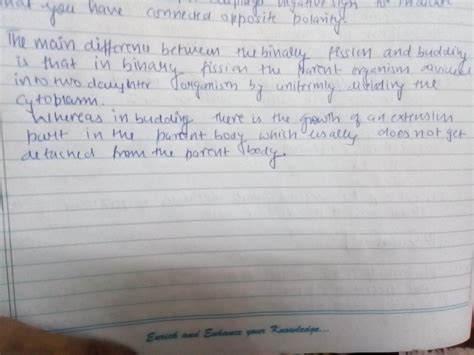 that you have connected opposite polarity.
The main difference between the binary fission and budding
is that in binary fission the parent organism divides
into two daughter organism by uniformly dividing the
cytoplasm.
Whereas in budding there is the growth of an extension
part in the parent body which usually does not get
detached from the parent body.
Enrich and Enhance your Knowledge...